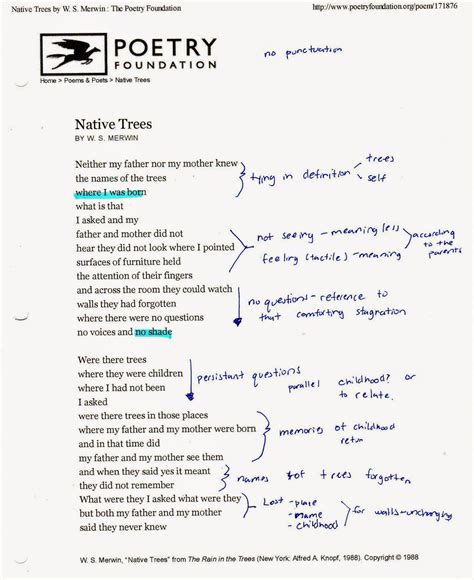 Native Trees by W. S. Merwin : The Poetry Foundation
http://www.poetryfoundation.org/poem/171876
POETRY
FOUNDATION
no punctuation
Home > Poems & Poets > Native Trees
Native Trees
BY W. S. MERWIN
Neither my father nor my mother knew
the names of the trees
where I was born
what is that
I asked and my
father and mother did not
hear they did not look where I pointed
surfaces of furniture held
the attention of their fingers
and across the room they could watch
walls they had forgotten
where there were no questions
no voices and no shade
tying in definition
trees
self
not seeing - meaningless
feeling (tactile) - meaning
according
to the
parents
no questions - reference to
that comforting stagnation
Were there trees
where they were children
where I had not been
I asked
were there trees in those places
where my father and my mother were born
and in that time did
my father and my mother see them
and when they said yes it meant
they did not remember
What were they I asked what were they
but both my father and my mother
said they never knew
persistant questions
parallel childhood? or
to relate.
memories of childhood
return
names of trees forgotten
Lost - place
- name
- childhood
for walls - unchanging
W. S. Merwin, "Native Trees" from The Rain in the Trees (New York: Alfred A. Knopf, 1988). Copyright © 1988